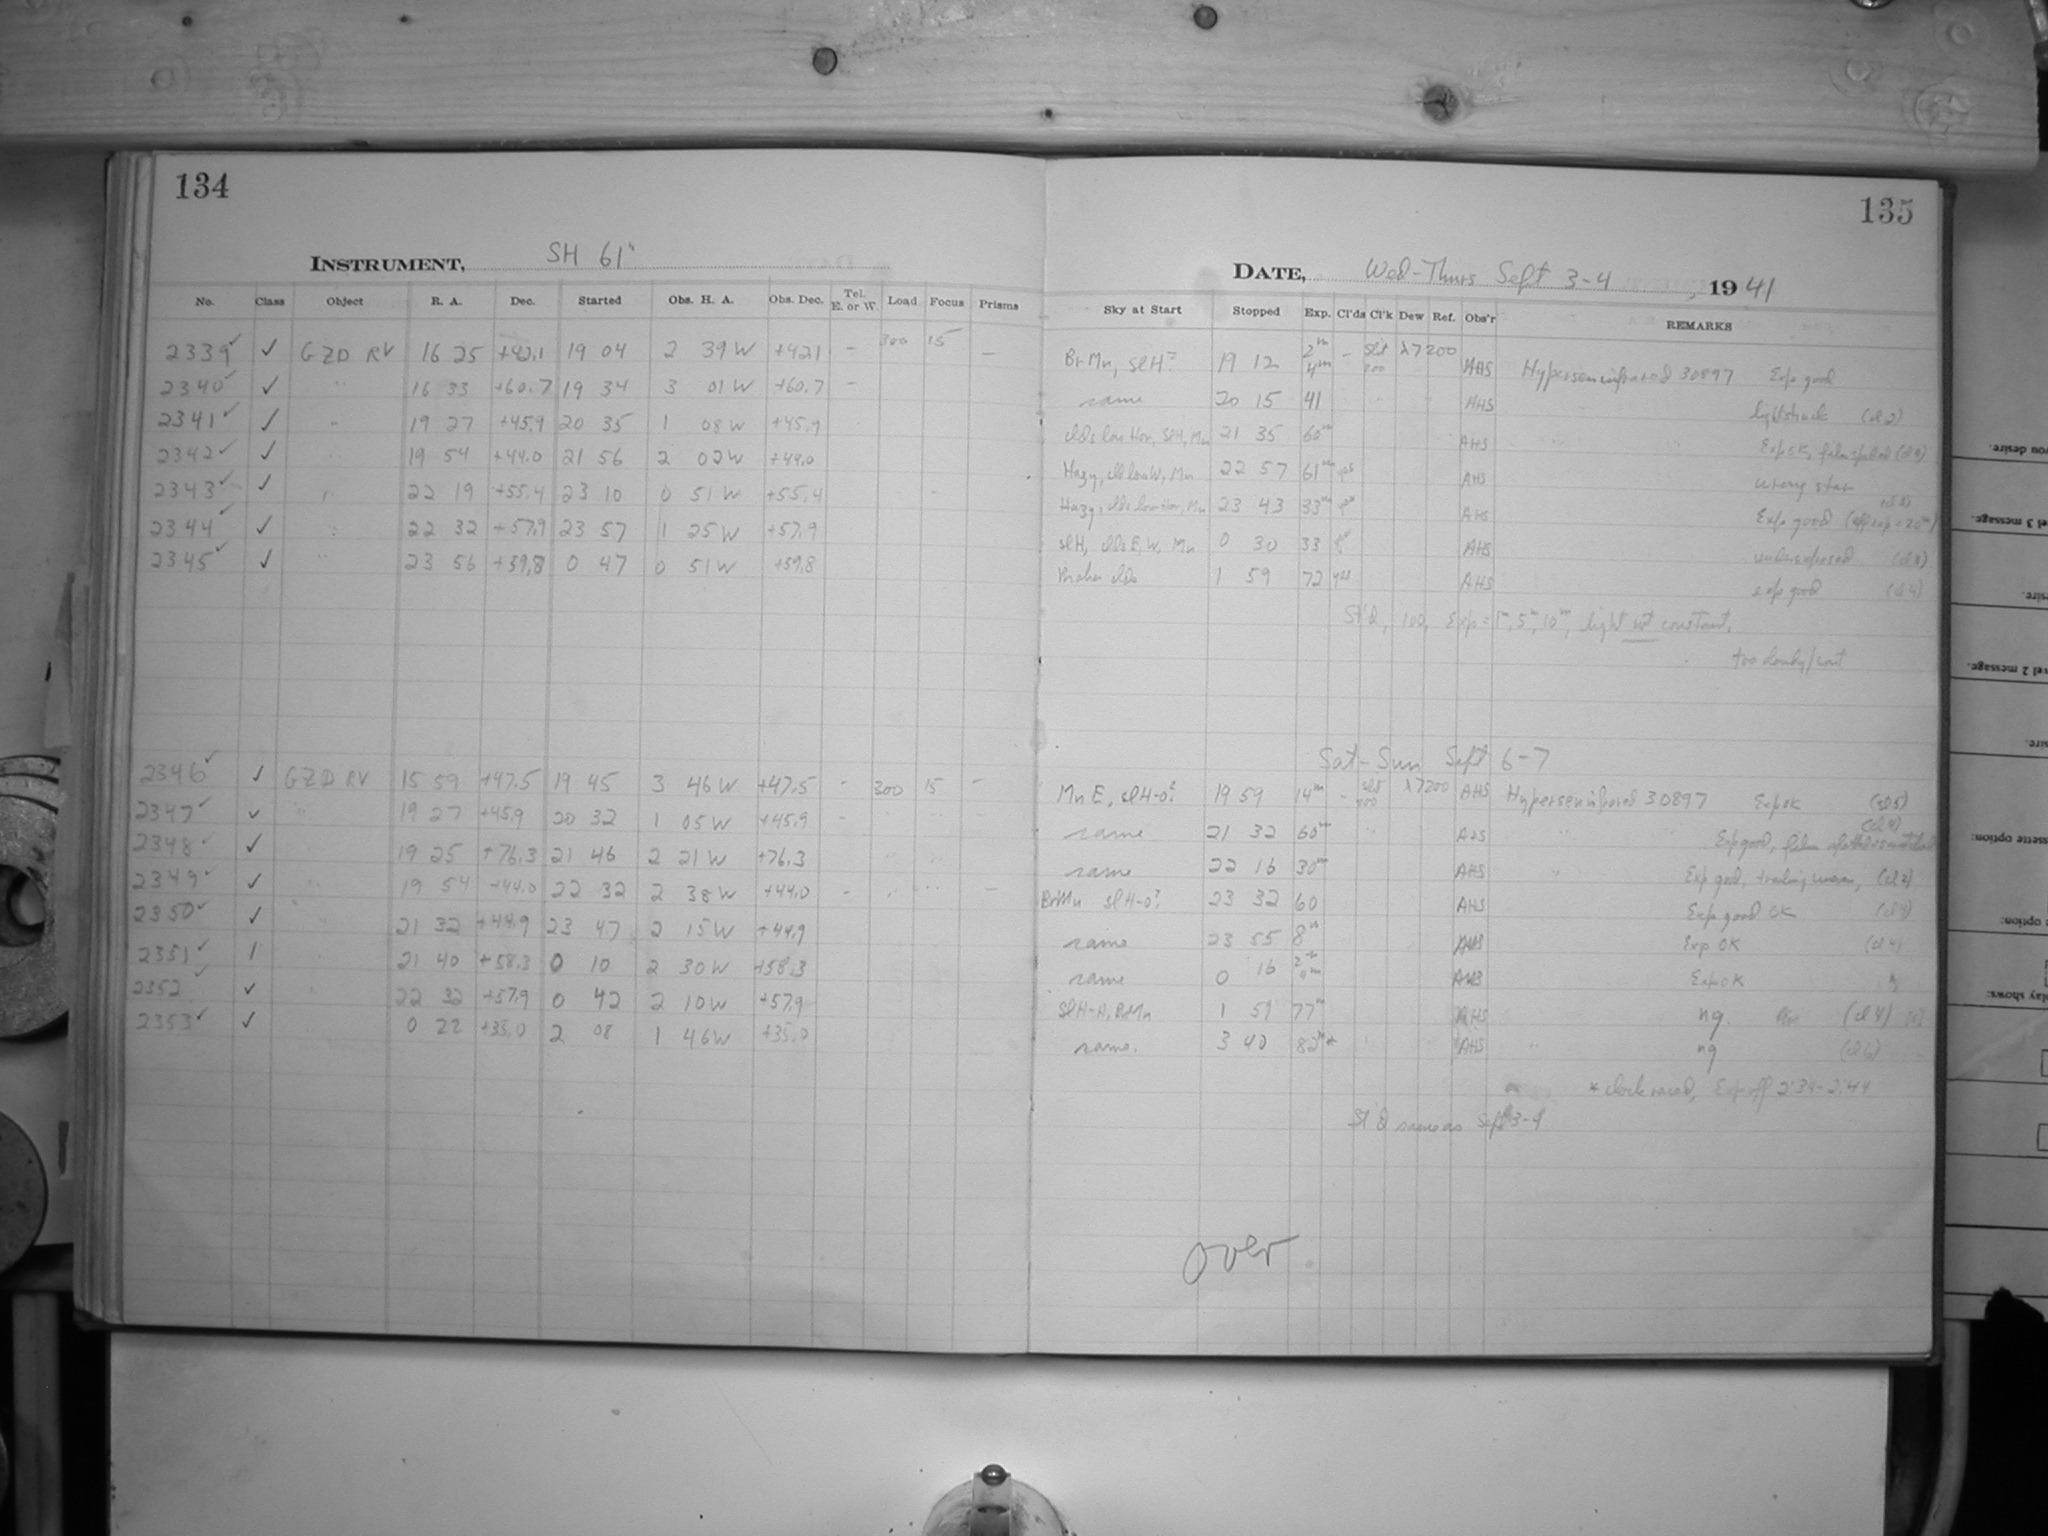 134
INSTRUMENT, SH 61"
No. Class Object R. A. Dec. Started Obs. H. A. Obs. Dec. Tel. E. or W. Load Focus Prisms
2339 ✓ GZD RV 16 25 +42.1 19 04 2 39 W +42.1 - 300 15 -
2340 ✓ " 16 33 +60.7 19 34 3 01 W +60.7 -
2341 ✓ " 19 27 +45.9 20 35 1 08 W +45.9
2342 ✓ " 19 54 +44.0 21 56 2 02 W +44.0
2343 ✓ " 22 19 +55.4 23 10 0 51 W +55.4
2344 ✓ " 22 32 +57.9 23 57 1 25 W +57.9
2345 ✓ " 23 56 +59.8 0 47 0 51 W +59.8
2346 ✓ GZD RV 15 59 +47.5 19 45 3 46 W +47.5 - 300 15 -
2347 ✓ " 19 27 +45.9 20 32 1 05 W +45.9 -
2348 ✓ 19 25 +76.3 21 46 2 21 W +76.3
2349 ✓ " 19 54 +44.0 22 32 2 38 W +44.0 - -
2350 ✓ " 21 32 +44.9 23 47 2 15 W +44.9
2351 21 40 +58.3 0 10 2 30 W +58.3
2352 ✓ " 22 32 +57.9 0 42 2 10 W +57.9
2353 ✓ 0 22 +35.0 2 08 1 46 W +35.0
135
DATE, Wed-Thurs Sept 3-4, 1941
Sky at Start Stopped Exp. Cl'ds Cl'k Dew Ref. Obs'r REMARKS
Br Mn, Sl H? 19 12 2m 4m - Slit 200 λ7200 AHS Hypersen infrared 30897 Exp good
same 20 15 41 AHS lightstruck
clds low Hor, Sl H, Mn 21 35 60m AHS Exp OK, film
Hazy, cld low W, Mn 22 57 61m yes AHS wrong star
Hazy, clds low Hor, Mn 23 43 33m AHS Exp good (eff exp = 20m)
Sl H, clds E, W, Mn 0 30 33 AHS underexposed
Broken clds 1 59 72 yes AHS exp good (cl 4)
St'd, 100, Exp = 1m, 5m, 10m, light not constant,
too cloudy/cont
Sat-Sun Sept 6-7
Mn E, sl H-0? 19 59 14m - λ7200 AHS Hypersen infrared 30897 Exp OK (cl 5)
same 21 32 60m AHS Exp good, film
same 22 16 30m AHS Exp good,
Br Mn sl H-0? 23 32 60 AHS Exp good OK
same 23 55 8m AHS Exp OK (cl 4)
same 0 16 2m 4m AHS Exp OK "
Sl H-H, Br Mn 1 59 77m AHS ng. (cl 4)
same. 3 40 82m* AHS " ng (cl 6)
* clock raced, Exp off 2:34-2:44
St'd same as Sept 3-4
over
you desire.
vel 3 message.
sire.
vel 2 message.
sire.
ssette option:
e option:
play shows: